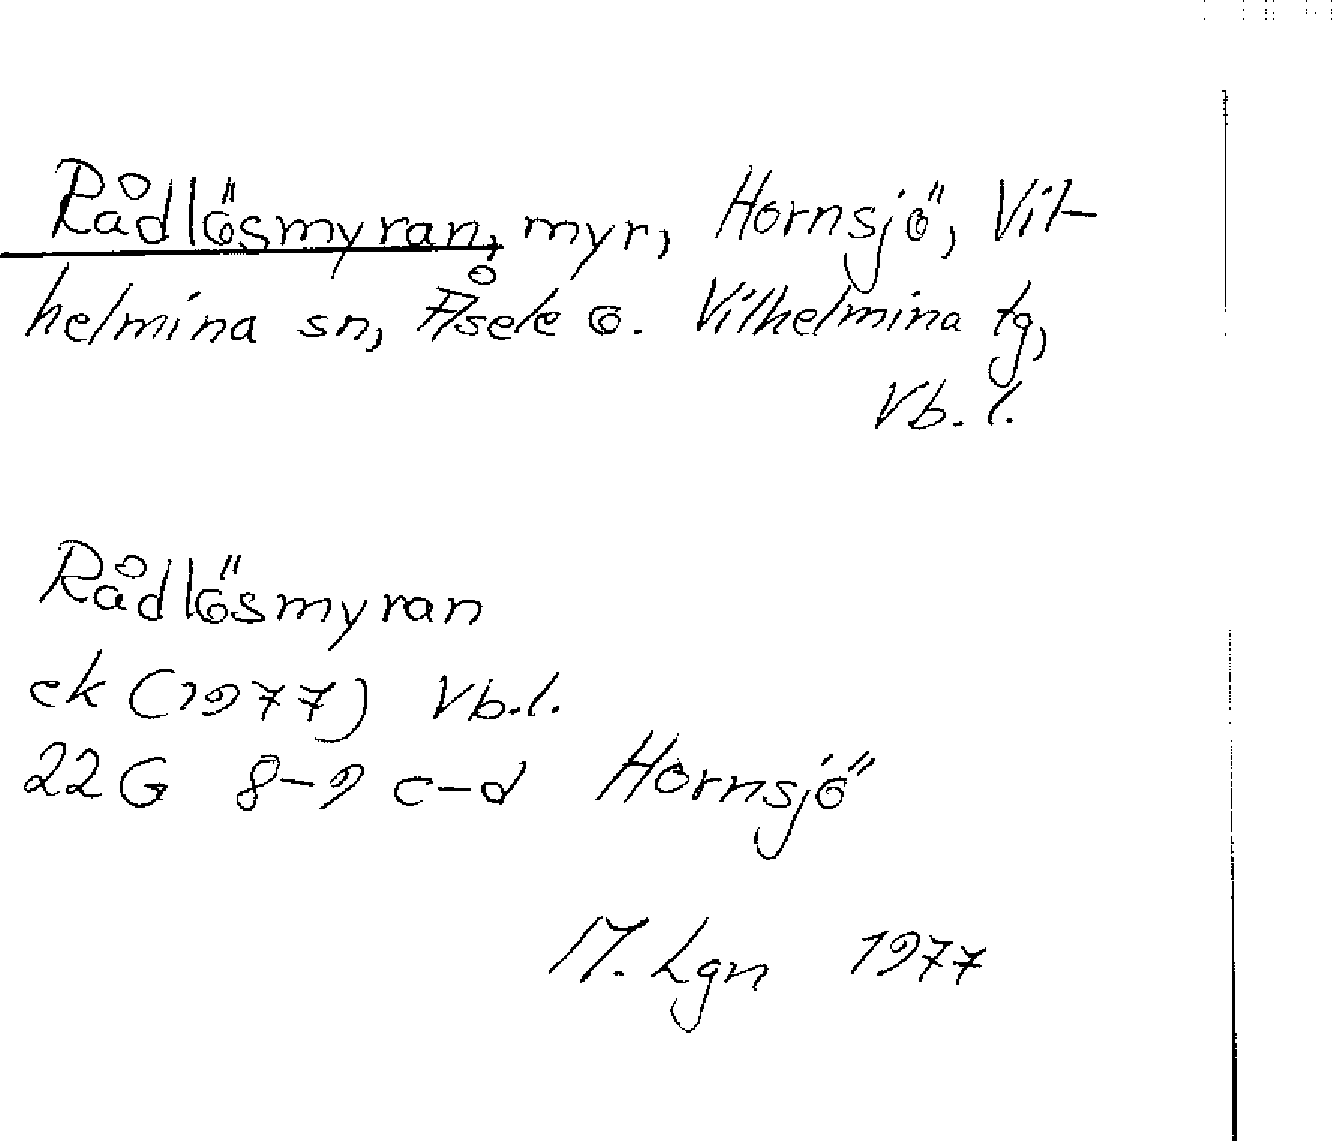 Rådlösmyran, myr, Hornsjö, Vil-
helmina sn, Åsele o. Vilhelmina tg,
Vb. l.
Rådlösmyran
ek (1977) Vb.l.
22G 8-9 c-d Hornsjö
M. Lgn 1977